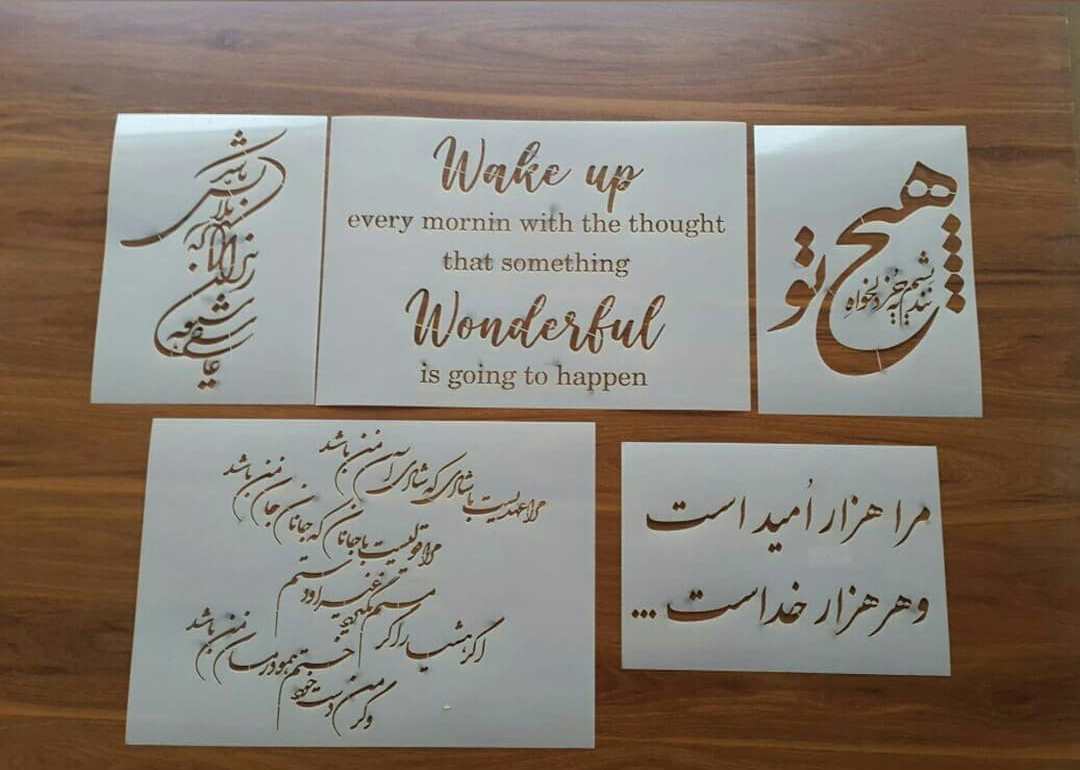 عاشقی شیوه رندان بلاکش باشد
Wake up
every mornin with the thought
that something
Wonderful
is going to happen
هیچ
نندیشم بجز دلخواه
تو
مرا عهدیست با شادی که شادی آن من باشد
مرا قولیست با جانان که جانان جان من باشد
اگر هشیار اگر مستم نگیرد غیر او دستم
وگر من دست خود خستم همو درمان من باشد
مرا هزار اُمید است
و هر هزار خداست...